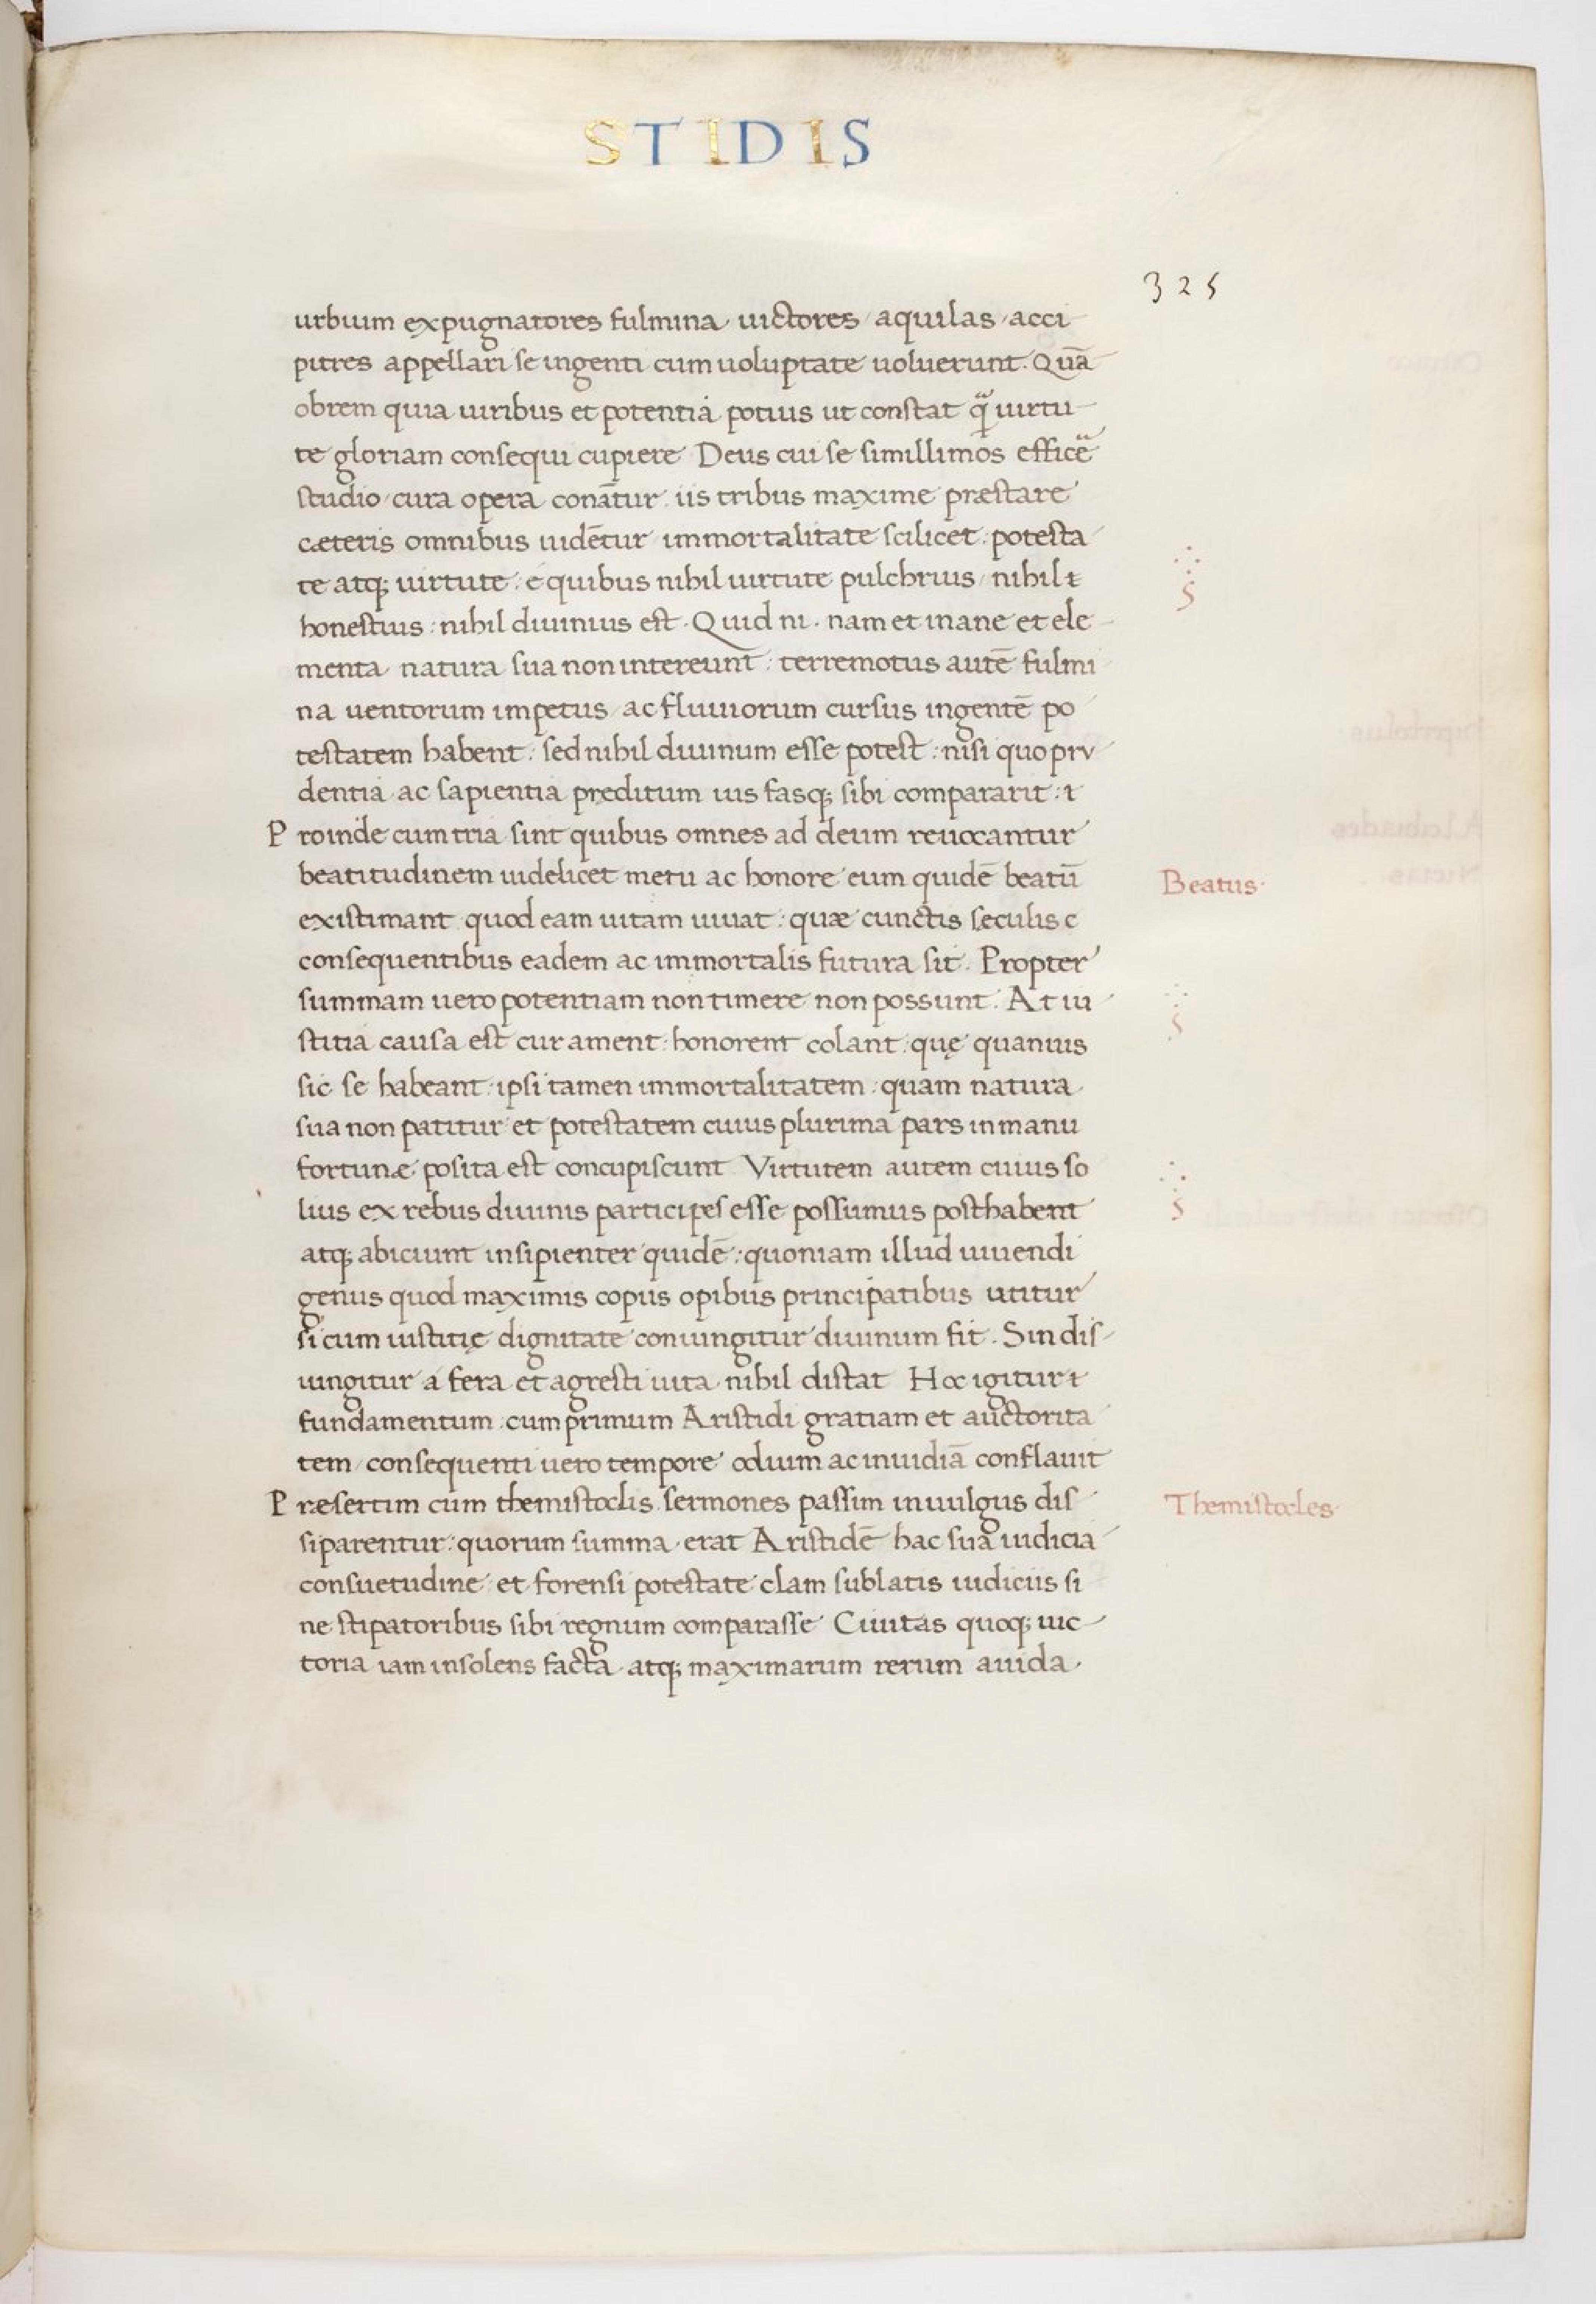 STIDIS
325
urbium expugnatores fulmina uictores aquilas acci
pitres appellari se ingenti cum uoluptate uoluerunt. Quā
obrem quia uiribus et potentia potius ut constat q̄ uirtu
te gloriam consequi cupiere Deus cui se simillimos efficē
studio cura opera conātur iis tribus maxime præstare
cæteris omnibus uidētur immortalitate scilicet : potesta
te atq; uirtute : e quibus nihil uirtute pulchrius nihil
honestius : nihil diuinius est. Quid ni. nam et inane et ele
menta natura sua non intereunt : terremotus autē fulmi
na uentorum impetus ac fluuiorum cursus ingentē po
testatem habent : sed nihil diuinum esse potest : nisi quo pru
dentia ac sapientia pręditum ius fasq; sibi compararit :
Proinde cum tria sint quibus omnes ad deum reuocantur
beatitudinem uidelicet metu ac honore eum quidē beatū
Beatus
existimant quod eam uitam uiuat : quæ cunctis seculis c
consequentibus eadem ac immortalis futura sit. Propter
summam uero potentiam non timere non possunt. At iu
stitia causa est cur ament : honorent colant : quę quanuis
sic se habeant : ipsi tamen immortalitatem : quam natura
sua non patitur et potestatem cuius plurima pars in manu
fortunæ posita est concupiscunt Virtutem autem cuius so
lius ex rebus diuinis participes esse possumus posthabent
atq; abiciunt insipienter quidē : quoniam illud uiuendi
genus quod maximis copiis opibus principatibus utitur
si cum iustitię dignitate coniungitur diuinum fit. Sin dis
iungitur a fera et agresti uita nihil distat Hoc igitur
fundamentum cum primum Aristidi gratiam et auctorita
tem consequenti uero tempore odium ac inuidiā conflauit
Præsertim cum themistoclis sermones passim in uulgus dis
Themistocles
siparentur : quorum summa erat Aristidē hac sua iudicia
consuetudine et forensi potestate clam sublatis iudiciis si
ne stipatoribus sibi regnum comparasse Ciuitas quoq; uic
toria iam insolens facta atq; maximarum rerum auida